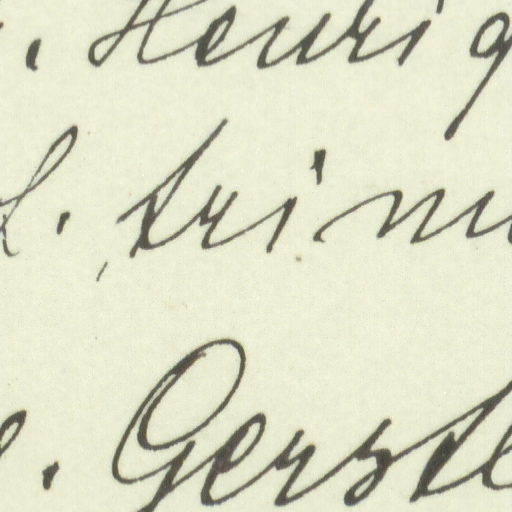 . Henriq
l. trim
. Gerste